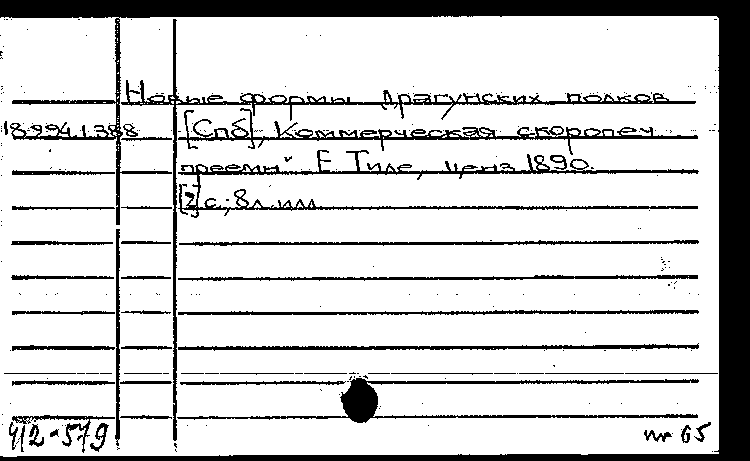 Новые формы драгунских полков
18.994.1.388 [Спб], Коммерческая скоропеч
преемн. Е Тиле, ценз 1890.
[2] с.; 8л. илл
412-579
пг 65